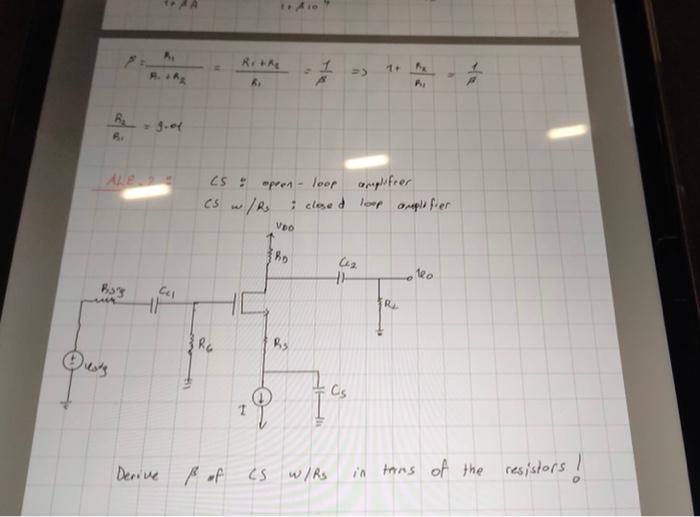 β = R₁ / R₁ + R₂ = R₁ + R₂ / R₁ = 1 / β => 1 + R₂ / R₁ = 1 / β
R₂ / R₁ = 9.01
CS : open-loop amplifier
CS w/Rs : closed loop amplifier
VDD
RD
Cc2
Rsig
Cc1
RL
RG
Rs
Vsig
I
Cs
Derive β of CS w/Rs in terms of the resistors!